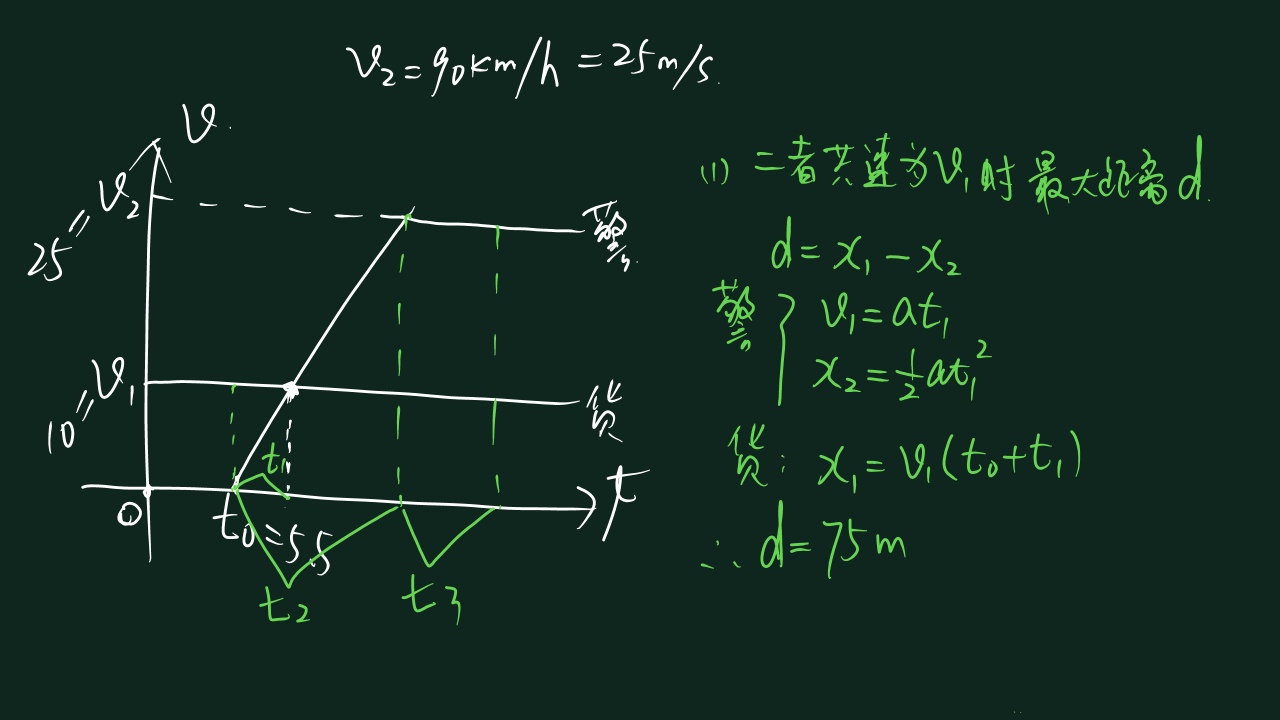 v₂=90km/h=25m/s.
v.
25=v₂
警
10=v₁
货
t₁
0
t₀=5s
t
t₂
t₃
(1) 二者共速为v₁时最大距离d.
d=x₁-x₂
警{v₁=at₁
x₂=½at₁²
货: x₁=v₁(t₀+t₁)
∴d=75m